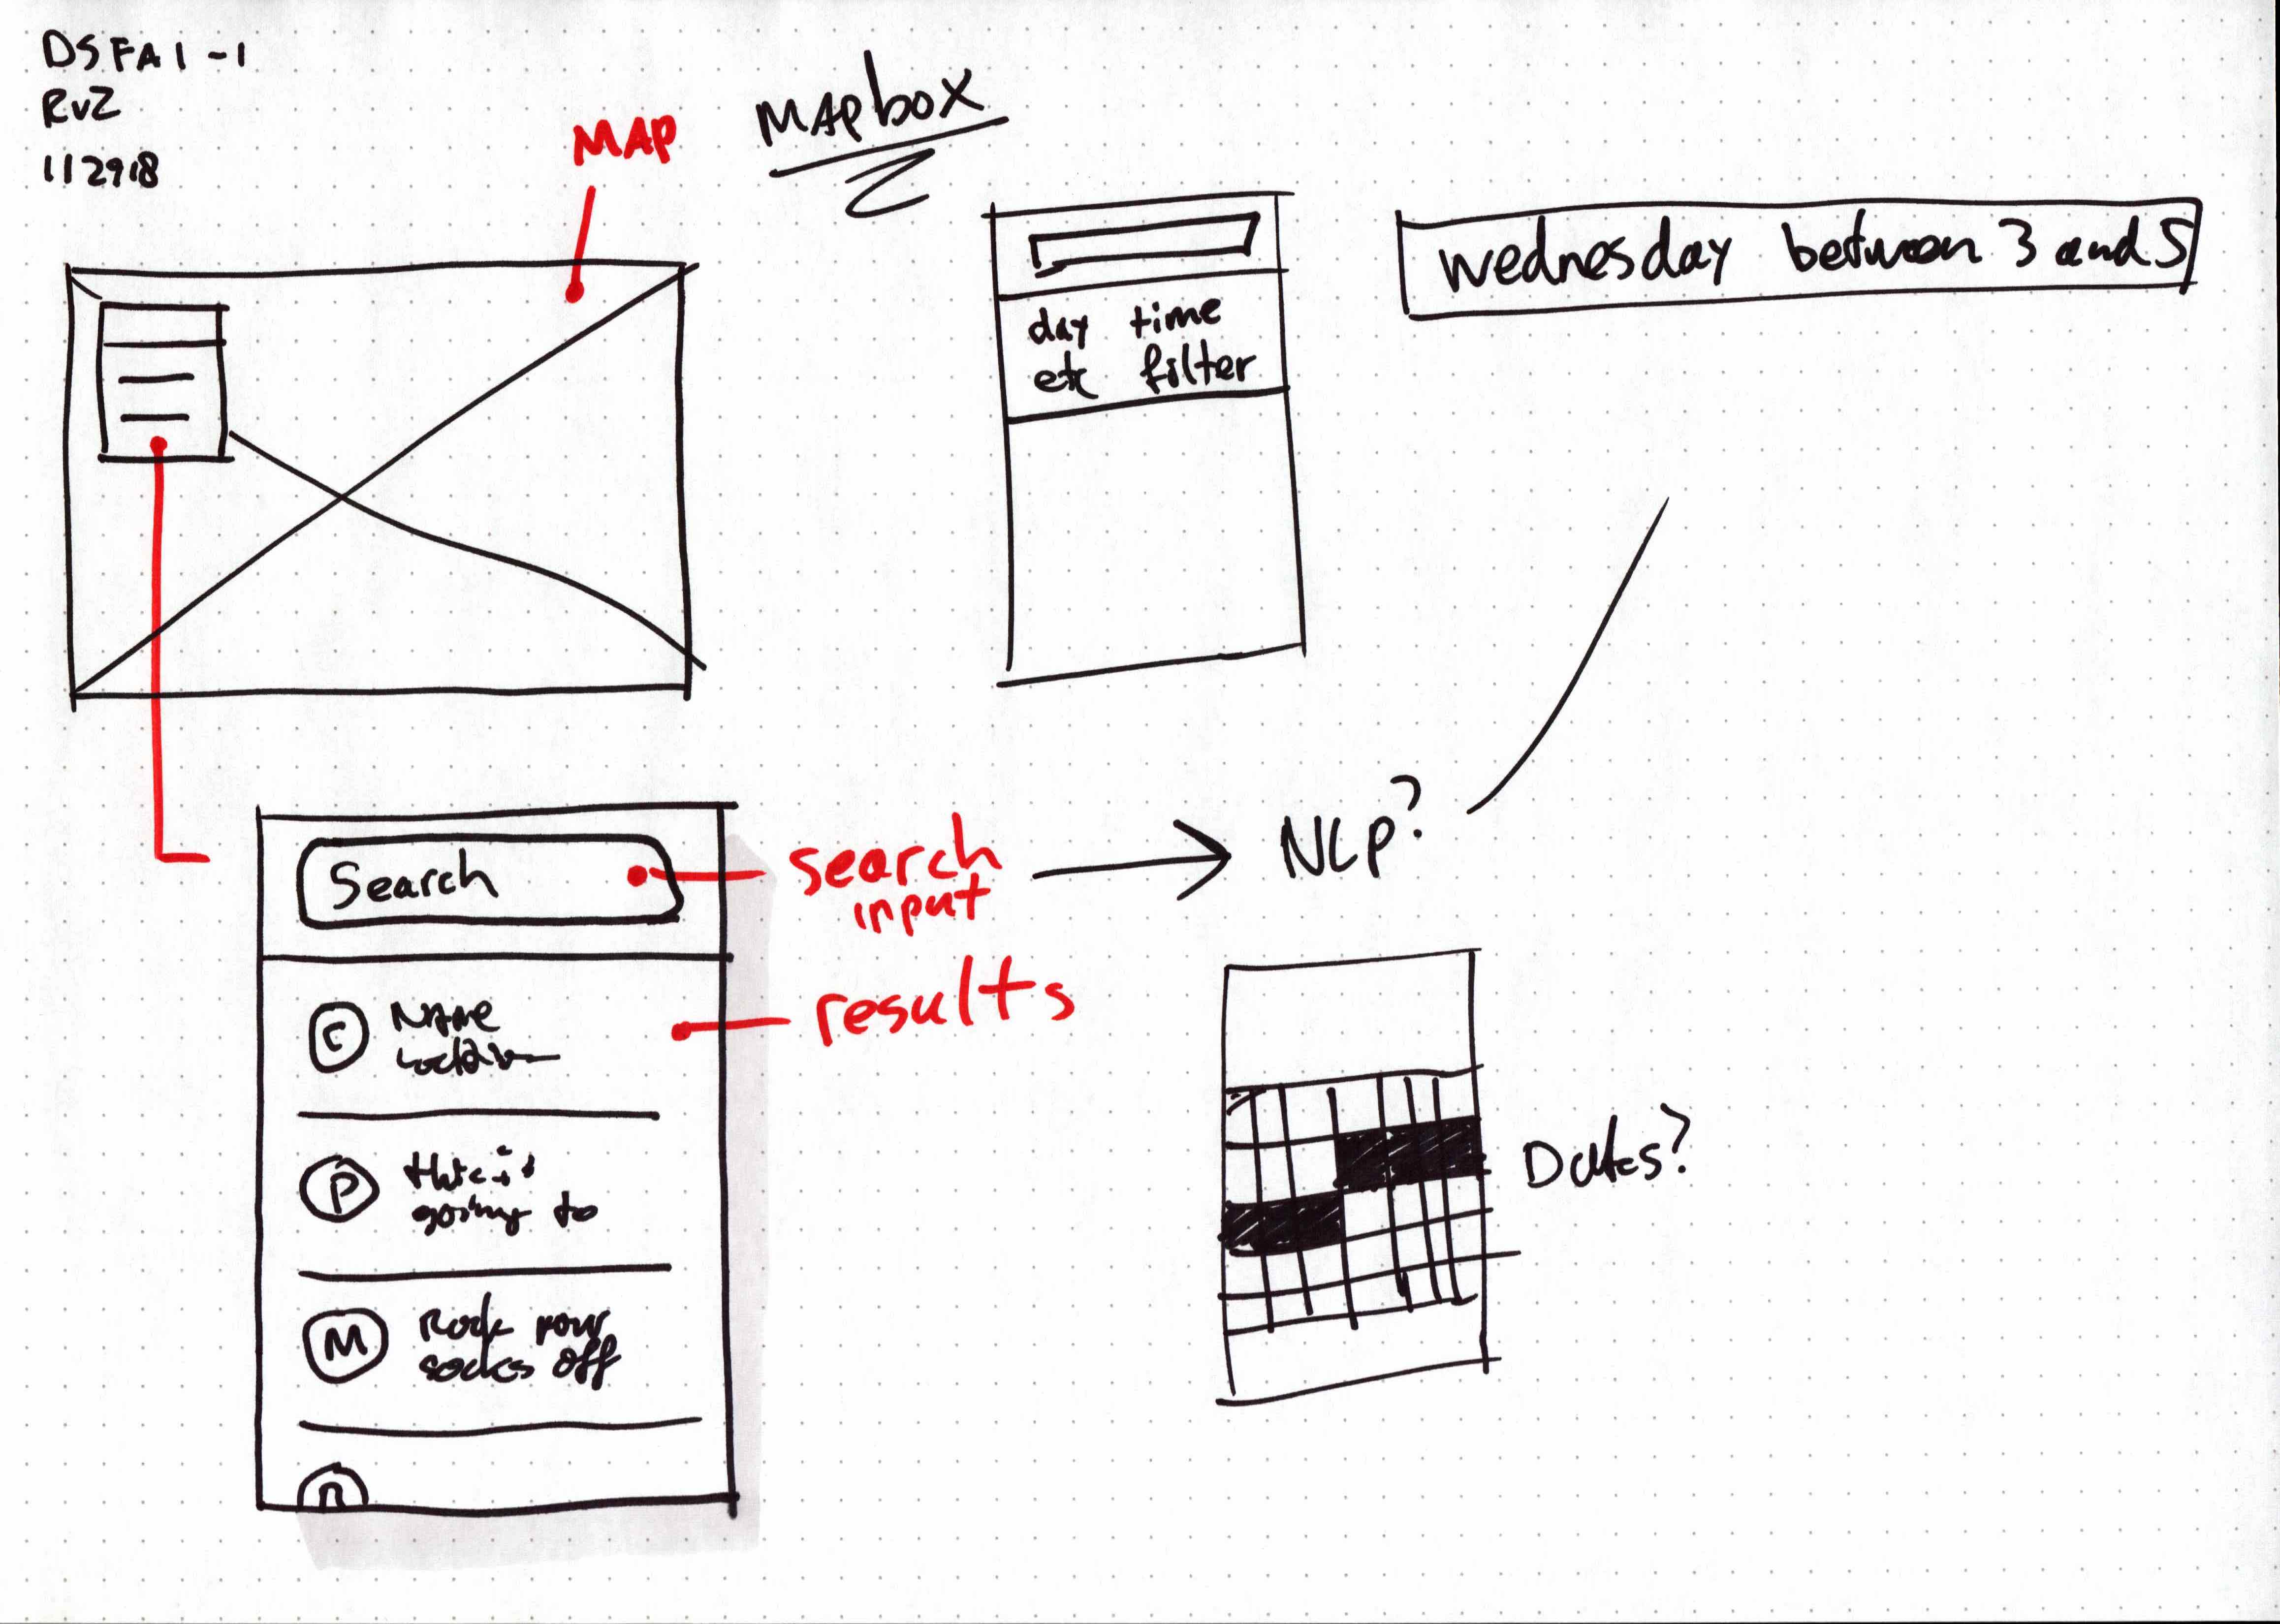 DSFA1-1
RvZ
112918
MAP
MAPbox
day time
etc filter
wednesday between 3 and 5
Search
search
input
NLP?
results
C
Name
Location
P
this is
going to
M
Rock your
socks off
Dates?